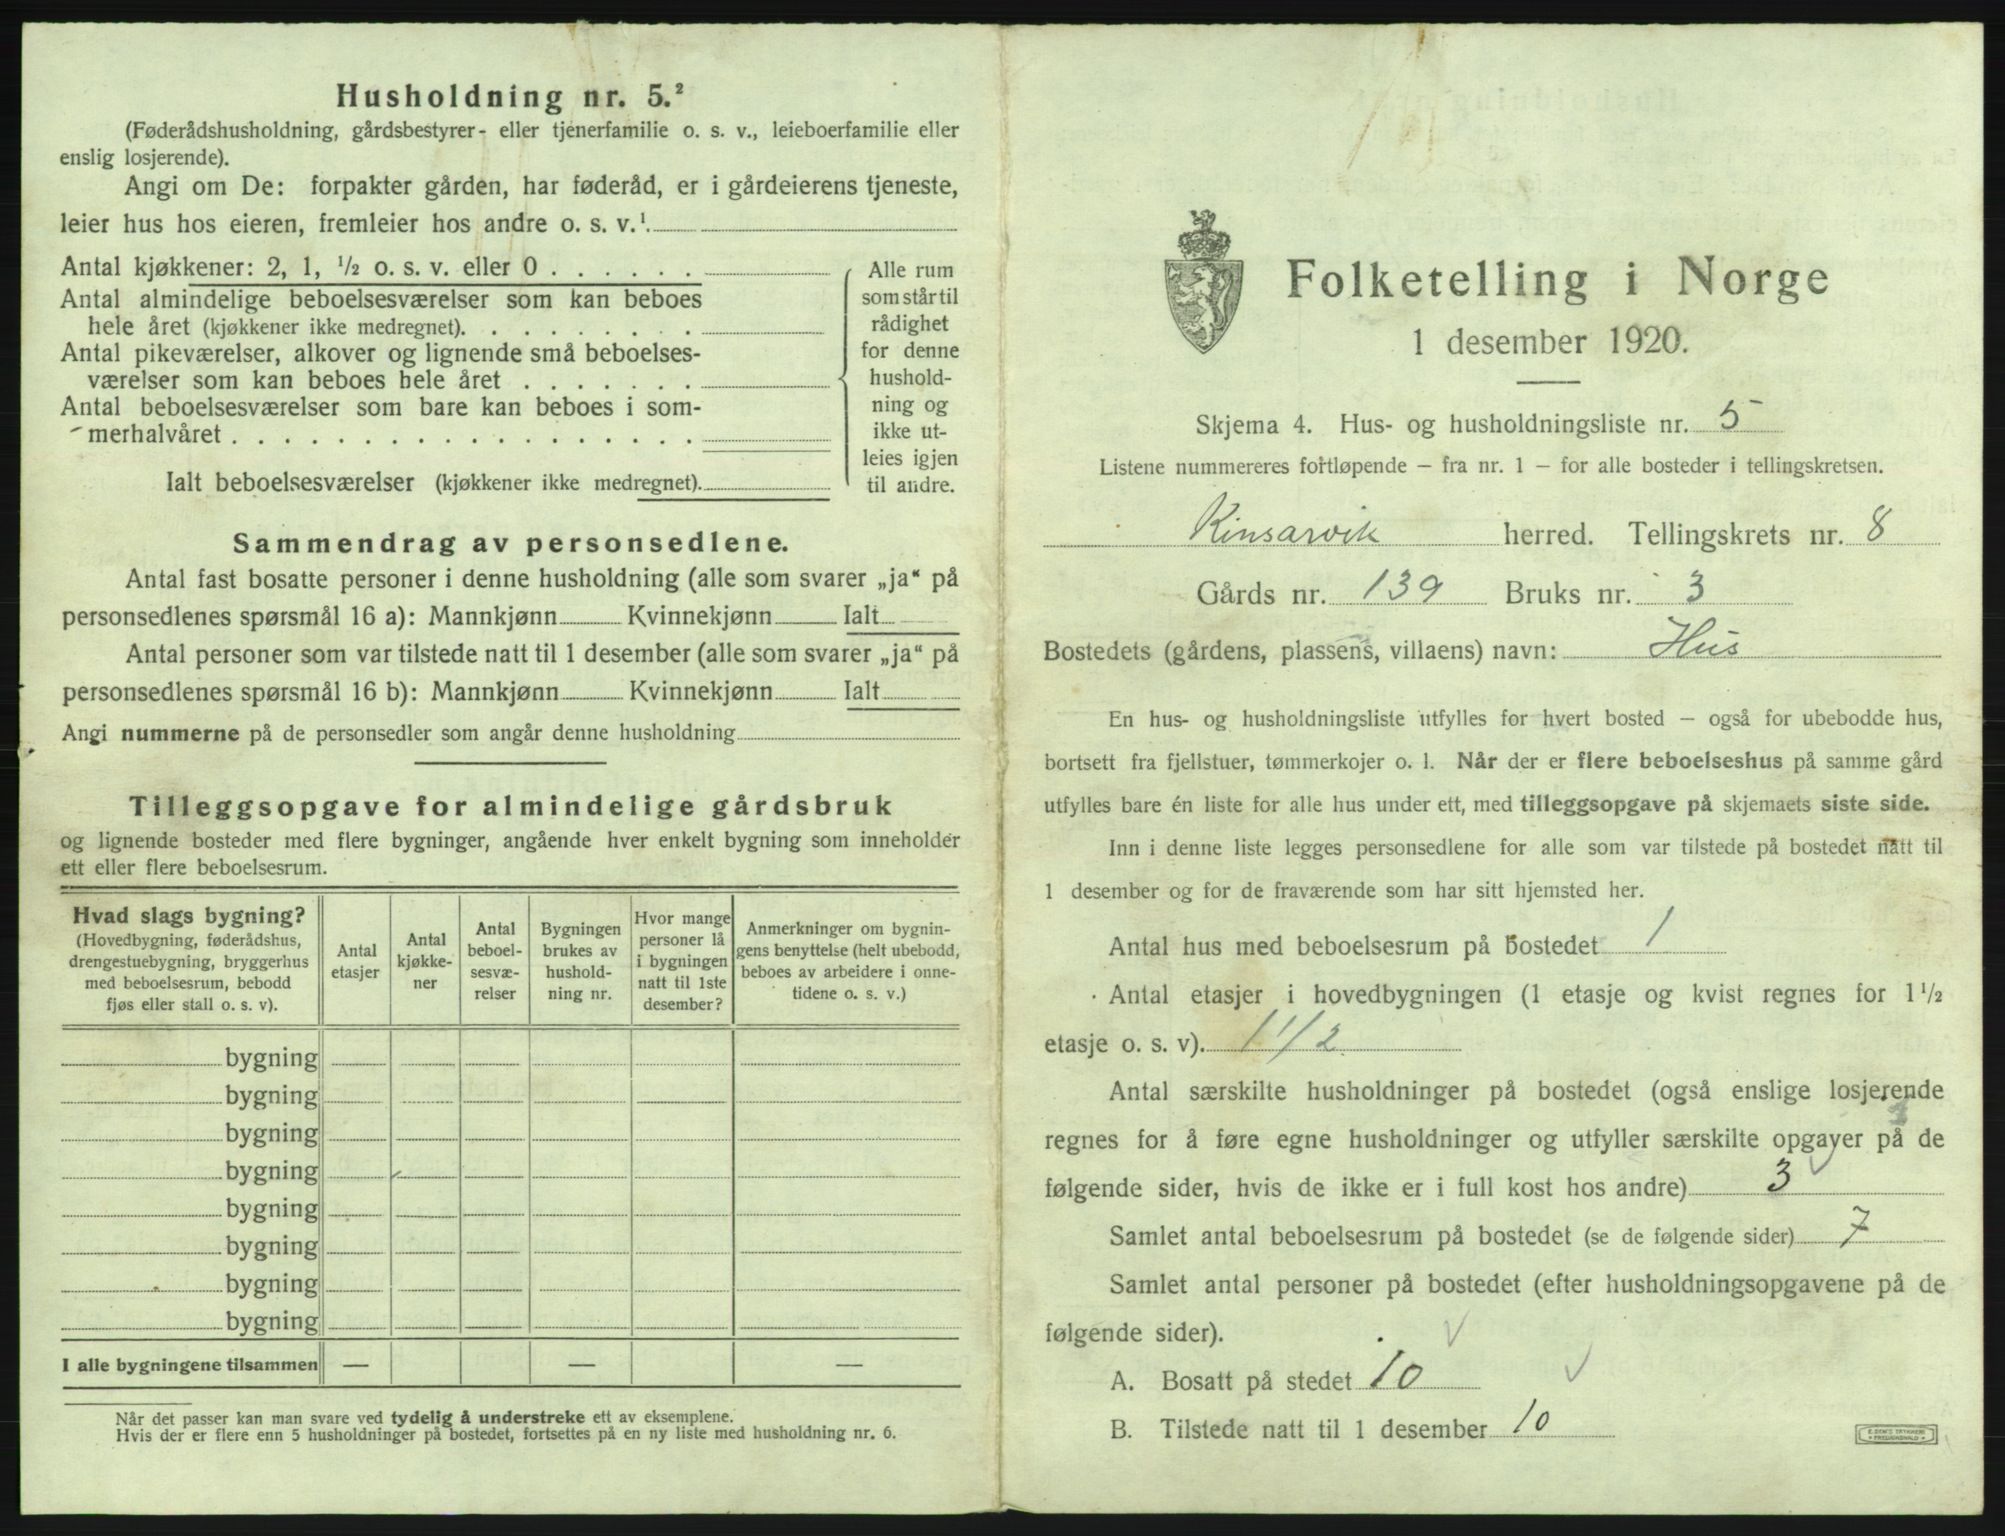 Husholdning nr. 5.²
(Føderådshusholdning, gårdsbestyrer- eller tjenerfamilie o. s. v., leieboerfamilie eller
enslig losjerende).
Angi om De: forpakter gården, har føderåd, er i gårdeierens tjeneste,
leier hus hos eieren, fremleier hos andre o. s. v.¹
Antal kjøkkener: 2, 1, ½ o. s. v. eller 0 . . . . . .
Antal almindelige beboelsesværelser som kan beboes
hele året (kjøkkener ikke medregnet). . . . . . . . .
Antal pikeværelser, alkover og lignende små beboelses-
værelser som kan beboes hele året . . . . . . .
Antal beboelsesværelser som bare kan beboes i som-
merhalvåret . . . . . . . . . . . . . . . . . .
Ialt beboelsesværelser (kjøkkener ikke medregnet).
Alle rum
som står til
rådighet
for denne
hushold-
ning og
ikke ut-
leies igjen
til andre.
Sammendrag av personsedlene.
Antal fast bosatte personer i denne husholdning (alle som svarer „ja“ på
personsedlenes spørsmål 16 a): Mannkjønn Kvinnekjønn Ialt
Antal personer som var tilstede natt til 1 desember (alle som svarer „ja“ på
personsedlenes spørsmål 16 b): Mannkjønn Kvinnekjønn Ialt
Angi nummerne på de personsedler som angår denne husholdning
Tilleggsopgave for almindelige gårdsbruk
og lignende bosteder med flere bygninger, angående hver enkelt bygning som inneholder
ett eller flere beboelsesrum.
Hvad slags bygning?
(Hovedbygning, føderådshus,
drengestuebygning, bryggerhus
med beboelsesrum, bebodd
fjøs eller stall o. s. v).
Antal
etasjer
Antal
kjøkke-
ner
Antal
beboel-
sesvæ-
relser
Bygningen
brukes av
hushold-
ning nr.
Hvor mange
personer lå
i bygningen
natt til 1ste
desember?
Anmerkninger om bygnin-
gens benyttelse (helt ubebodd,
beboes av arbeidere i onne-
tidene o. s. v.)
bygning
bygning
bygning
bygning
bygning
bygning
bygning
bygning
I alle bygningene tilsammen — — —
Når det passer kan man svare ved tydelig å understreke ett av eksemplene.
Hvis der er flere enn 5 husholdninger på bostedet, fortsettes på en ny liste med husholdning nr. 6.
Folketelling i Norge
1 desember 1920.
Skjema 4. Hus- og husholdningsliste nr. 5
Listene nummereres fortløpende – fra nr. 1 – for alle bosteder i tellingskretsen.
Kinsarvik herred. Tellingskrets nr. 8
Gårds nr. 139 Bruks nr. 3
Bostedets (gårdens, plassens, villaens) navn: Hus
En hus- og husholdningsliste utfylles for hvert bosted – også for ubebodde hus,
bortsett fra fjellstuer, tømmerkojer o. l. Når der er flere beboelseshus på samme gård
utfylles bare én liste for alle hus under ett, med tilleggsopgave på skjemaets siste side.
Inn i denne liste legges personsedlene for alle som var tilstede på bostedet natt til
1 desember og for de fraværende som har sitt hjemsted her.
Antal hus med beboelsesrum på bostedet 1
Antal etasjer i hovedbygningen (1 etasje og kvist regnes for 1½
etasje o. s. v). 1 1/2
Antal særskilte husholdninger på bostedet (også enslige losjerende
regnes for å føre egne husholdninger og utfyller særskilte opgaver på de
følgende sider, hvis de ikke er i full kost hos andre) 3
Samlet antal beboelsesrum på bostedet (se de følgende sider) 7
Samlet antal personer på bostedet (efter husholdningsopgavene på de
følgende sider).
A. Bosatt på stedet 10
B. Tilstede natt til 1 desember 10